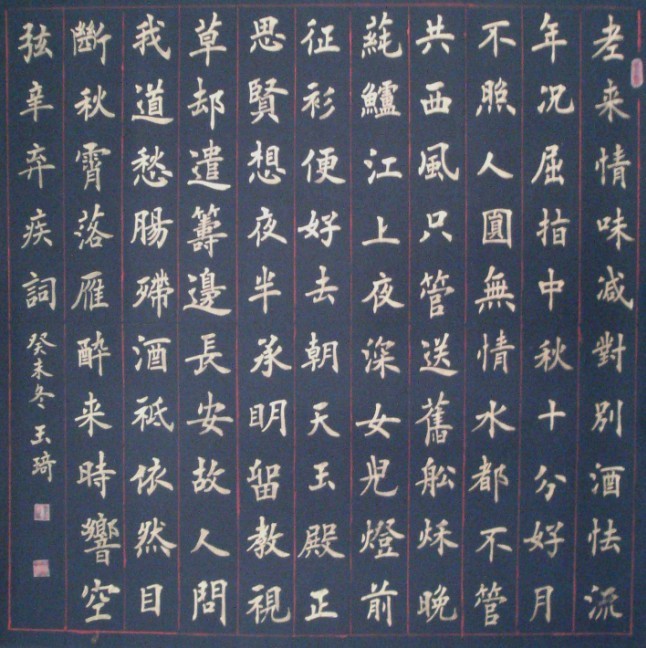 老来情味减對別酒怯流
年况屈指中秋十分好月
不照人圓無情水都不管
共西風只管送舊舩秋晚
蒓鱸江上夜深女児燈前
征衫便好去朝天玉殿正
思賢想夜半承明留教視
草却遣籌邊長安故人問
我道愁腸殢酒祗依然目
斷秋霄落雁醉来時響空
弦辛弃疾詞 癸未冬玉琦